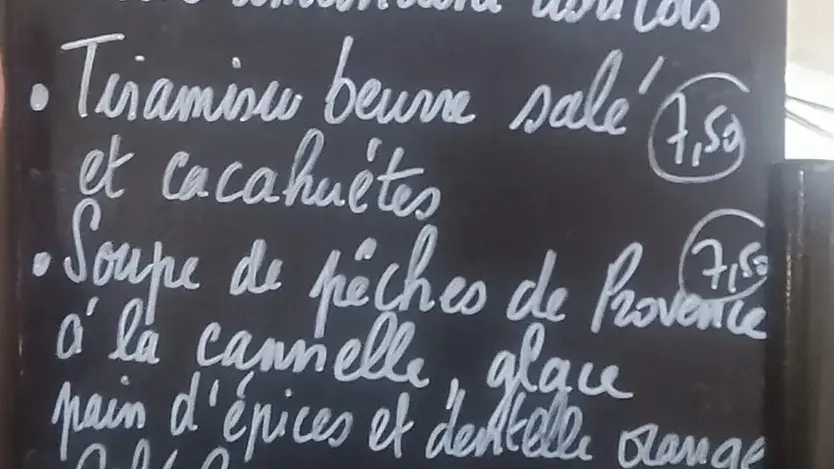 • Tiramisu beurre salé 7,50
et cacahuètes
• Soupe de pêches de Provence 7,50
à la cannelle, glace
pain d'épices et dentelle orange